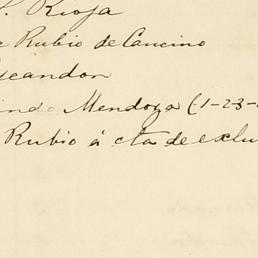 S. Rioja
Rubio de Cancino
Escandon
Mendoza (1-23-
Rubio á cta de exclu